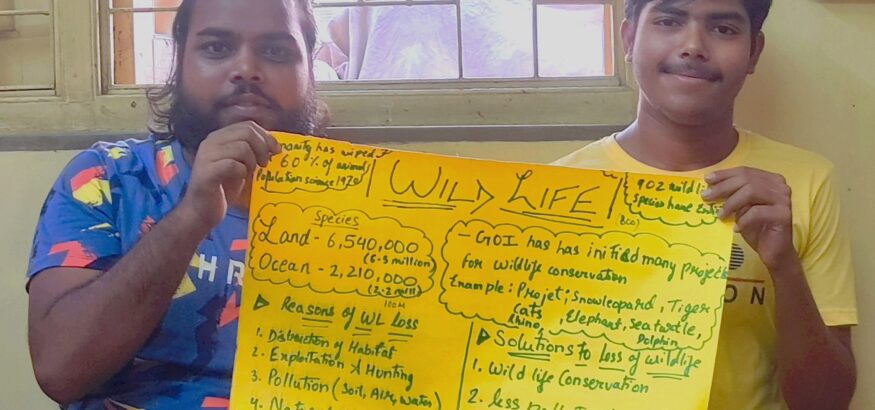 has wiped
60% of animals
Population science 1970
WILD LIFE
902 wild
species have
Species
Land - 6,540,000
(6.5 million)
Ocean - 2,210,000
(2.2 mill)
- GOI has has initied many project
for wildlife conservation
Example: Projet; Snowleopard, Tiger
Cats, Elephant, Seaturtle,
Rhino, Dolphin
▶ Reasons of WL Loss
1. Distruction of Habitat
2. Exploitation & Hunting
3. Pollution (Soil, Air, Water)
4.
▶ Solutions to loss of wildlife
1. Wild life Conservation
2. less
HR
ON